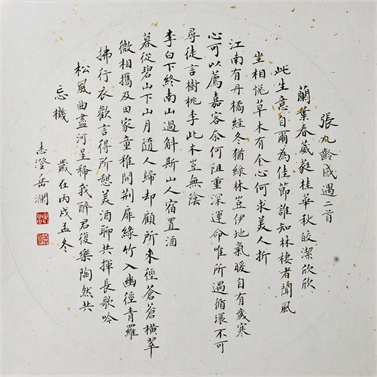 張九齡感遇二首
蘭葉春葳蕤桂華秋皎潔欣欣
此生意自爾為佳節誰知林棲者聞風
坐相悅草木有本心何求美人折
江南有丹橘經冬猶綠林豈伊地氣暖自有歲寒
心可以薦嘉客奈何阻重深運命唯所遇循環不可
尋徒言樹桃李此木豈無陰
李白下終南山過斛斯山人宿置酒
暮從碧山下山月隨人歸却顧所來徑蒼蒼橫翠
微相攜及田家童稚開荊扉綠竹入幽徑青蘿
拂行衣歡言得所憩美酒聊共揮長歌吟
松風曲盡河星稀我醉君復樂陶然共
忘機
歲在丙戌孟冬